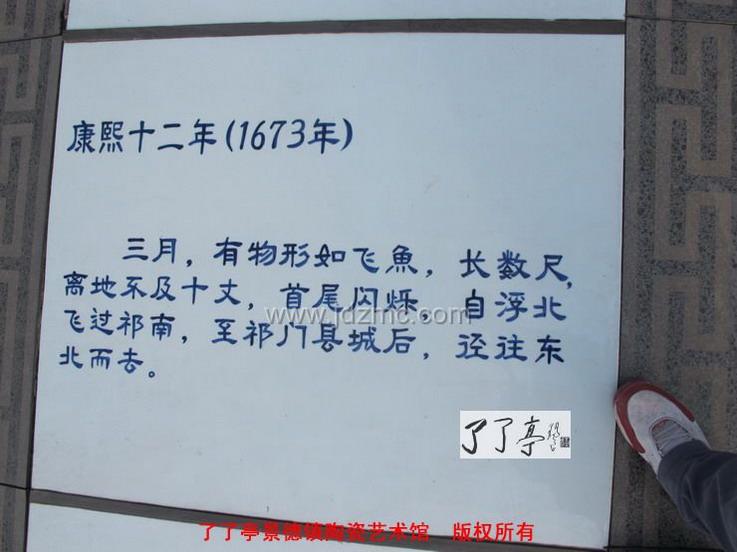 康熙十二年(1673年)
三月，有物形如飞魚，长数尺，
离地不及十丈，首尾闪烁，自浮北
飞过祁南，至祁门县城后，迳往东
北而去。
www.jdzmc.com
了了亭
了了亭景德镇陶瓷艺术馆 版权所有